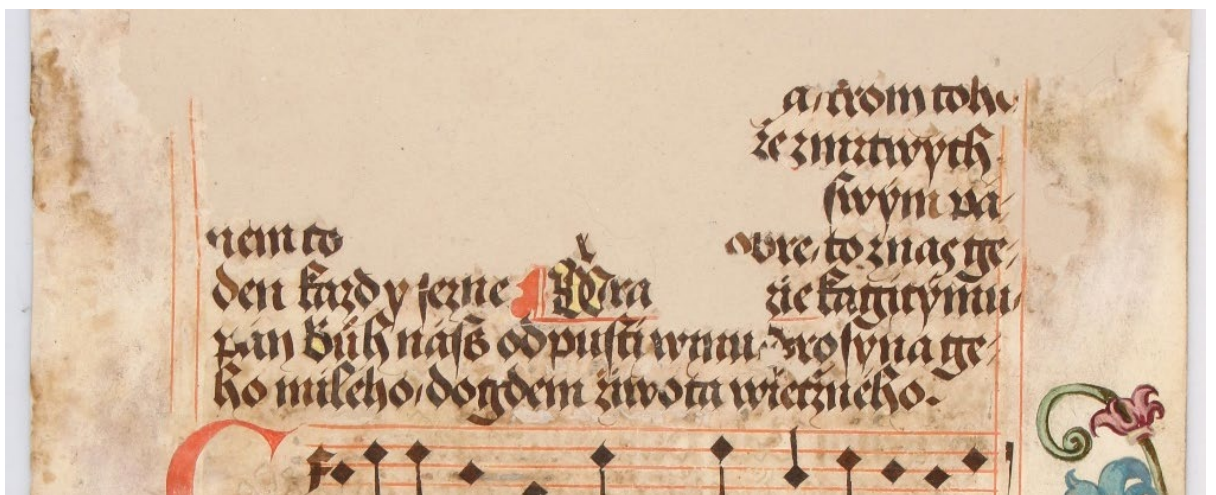 a krom toho
že zmrtwych
swým pá⸗
nem to obre, to znas ge⸗
den každy žezne zie kagicýmu
pan Buoh násß odpusti winu Pro syna ge⸗
ho milého, dogdem žiwota wiecžného.